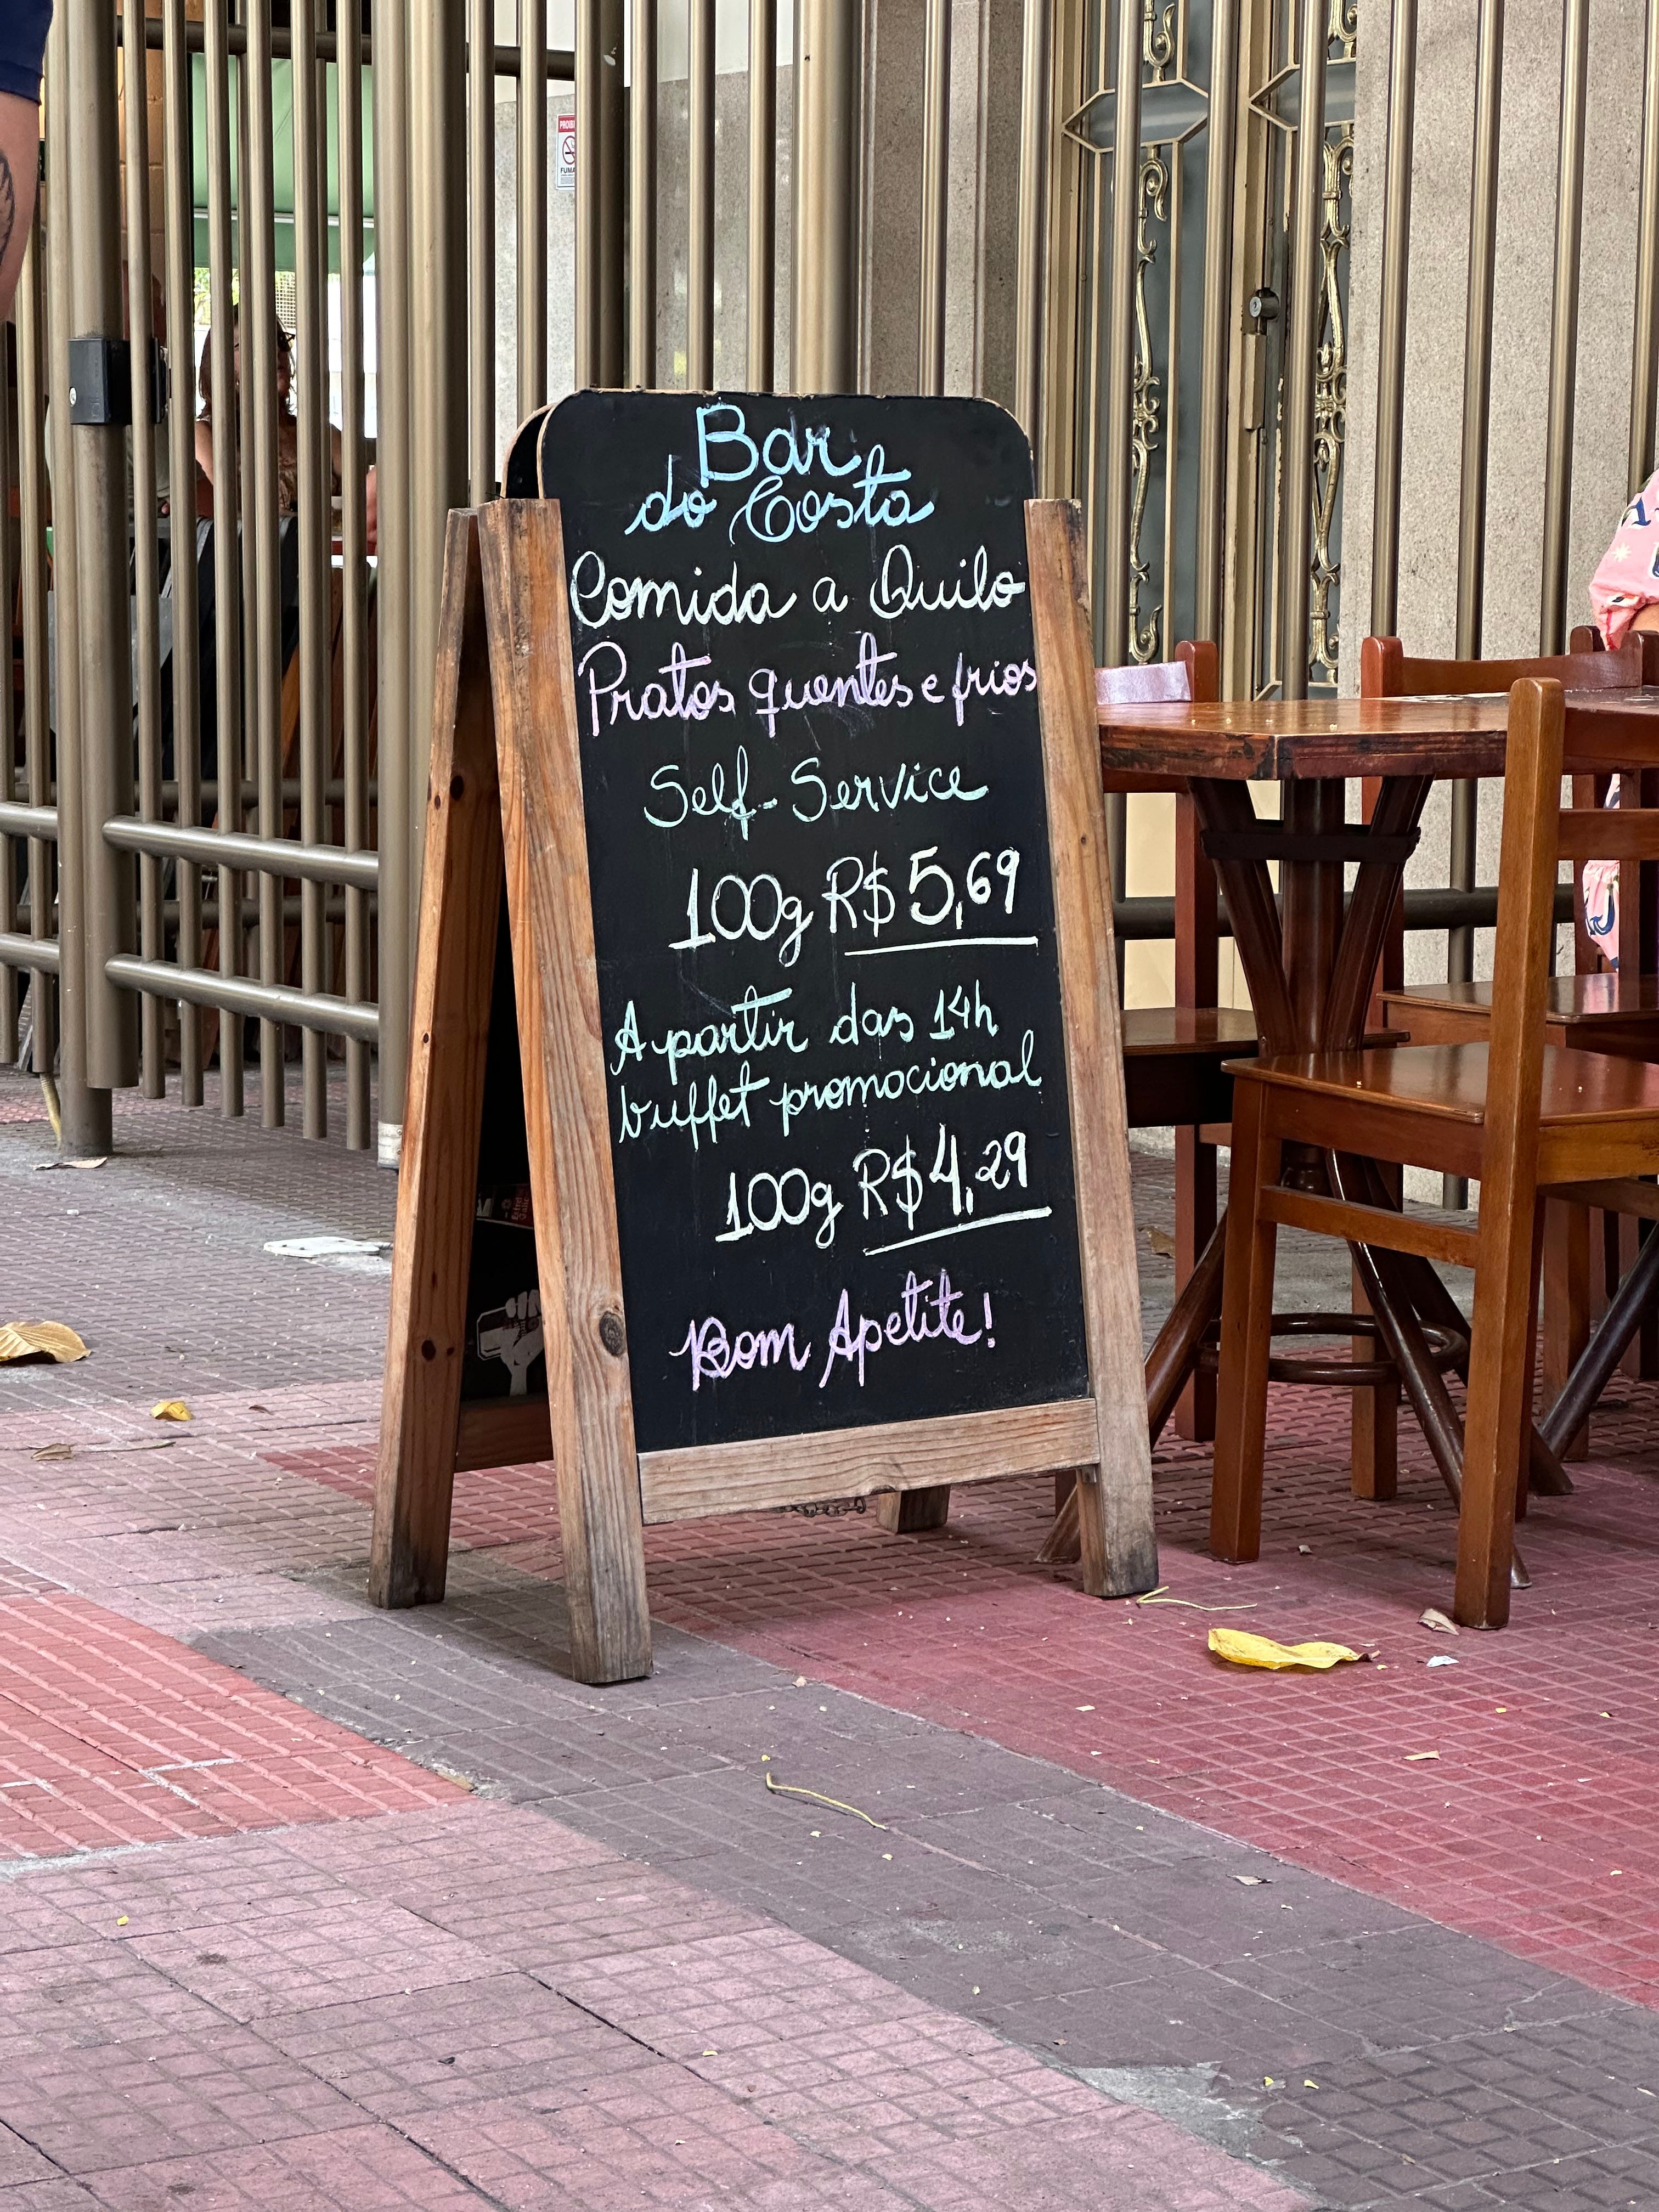 Bar
do Costa
Comida a Quilo
Pratos quentes e frios
Self-Service
100g R$ 5,69
A partir das 14h
buffet promocional
100g R$ 4,29
Bom Apetite!